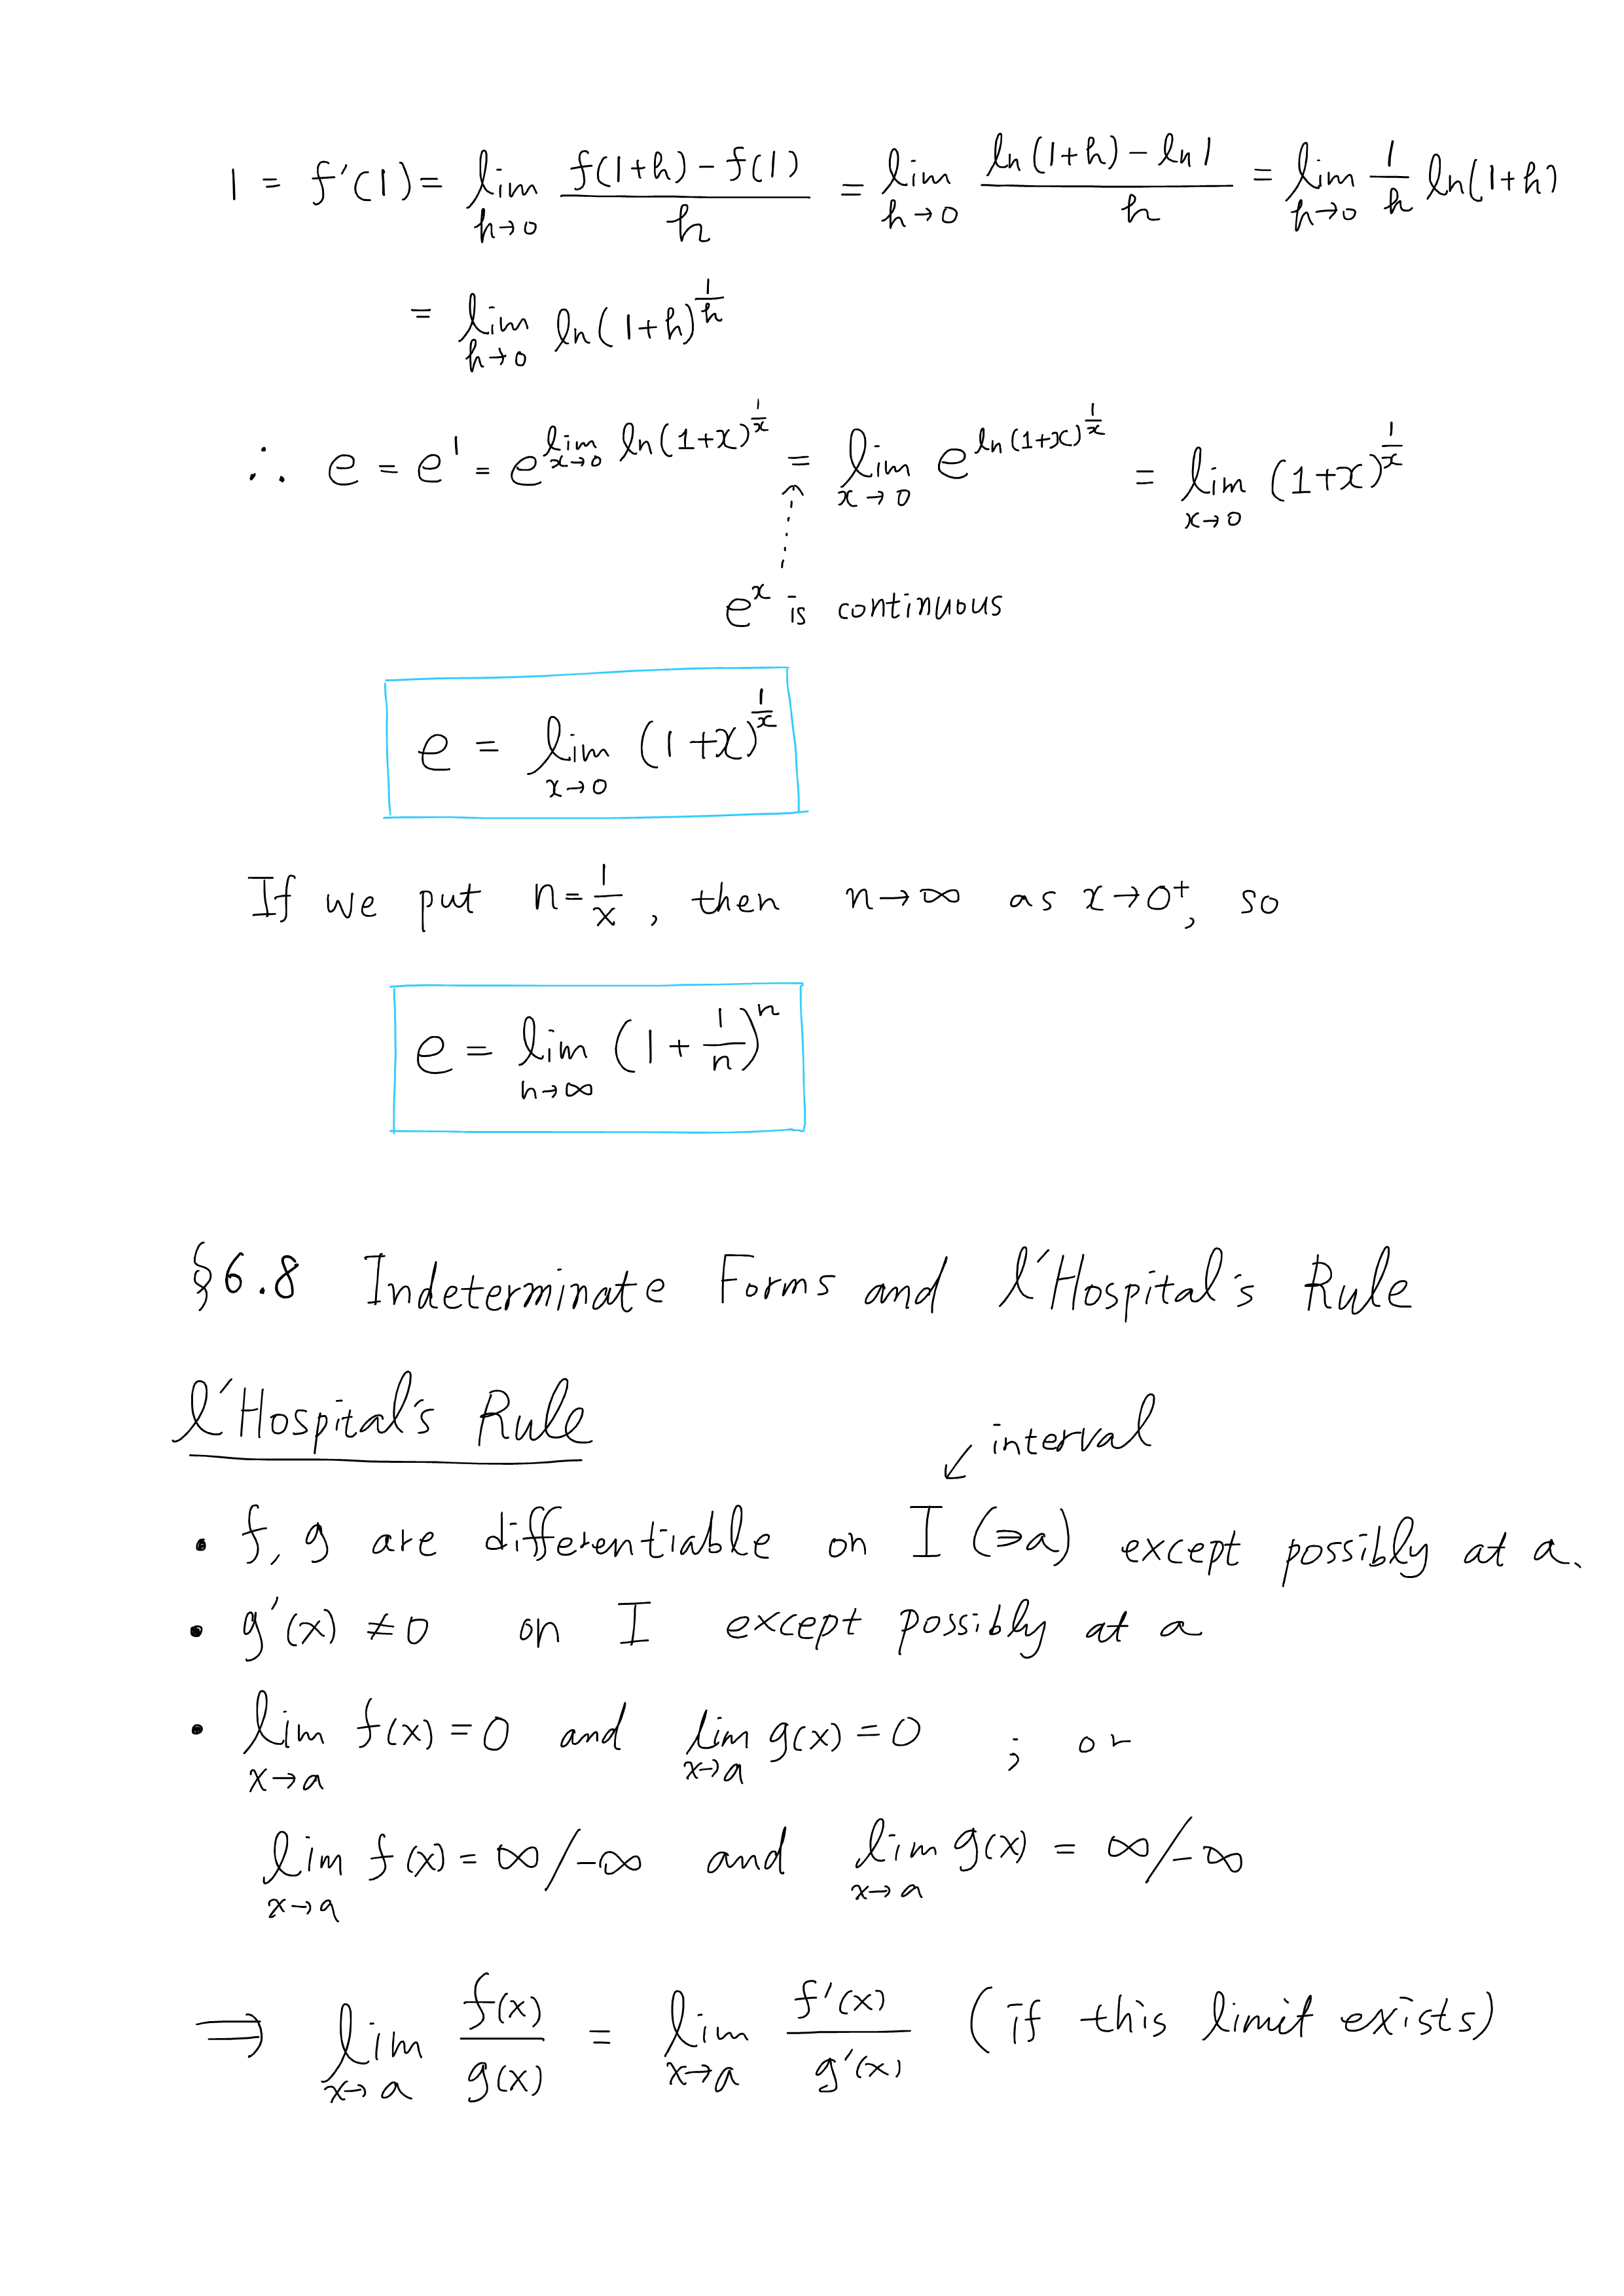 1 = f'(1) = lim_{h→0} \frac{f(1+h) - f(1)}{h} = lim_{h→0} \frac{ln(1+h) - ln1}{h} = lim_{h→0} \frac{1}{h} ln(1+h)
= lim_{h→0} ln(1+h)^{\frac{1}{h}}
∴ e = e^1 = e^{lim_{x→0} ln(1+x)^{\frac{1}{x}}} = lim_{x→0} e^{ln(1+x)^{\frac{1}{x}}} = lim_{x→0} (1+x)^{\frac{1}{x}}
e^x is continuous
e = lim_{x→0} (1+x)^{\frac{1}{x}}
If we put n = \frac{1}{x}, then n→∞ as x→0^+, so
e = lim_{n→∞} (1 + \frac{1}{n})^n
§6.8 Indeterminate Forms and l'Hospital's Rule
l'Hospital's Rule
↙ interval
• f, g are differentiable on I (∋a) except possibly at a.
• g'(x) ≠ 0 on I except possibly at a
• lim_{x→a} f(x) = 0 and lim_{x→a} g(x) = 0 ; or
lim_{x→a} f(x) = ∞/-∞ and lim_{x→a} g(x) = ∞/-∞
⇒ lim_{x→a} \frac{f(x)}{g(x)} = lim_{x→a} \frac{f'(x)}{g'(x)} (if this limit exists)